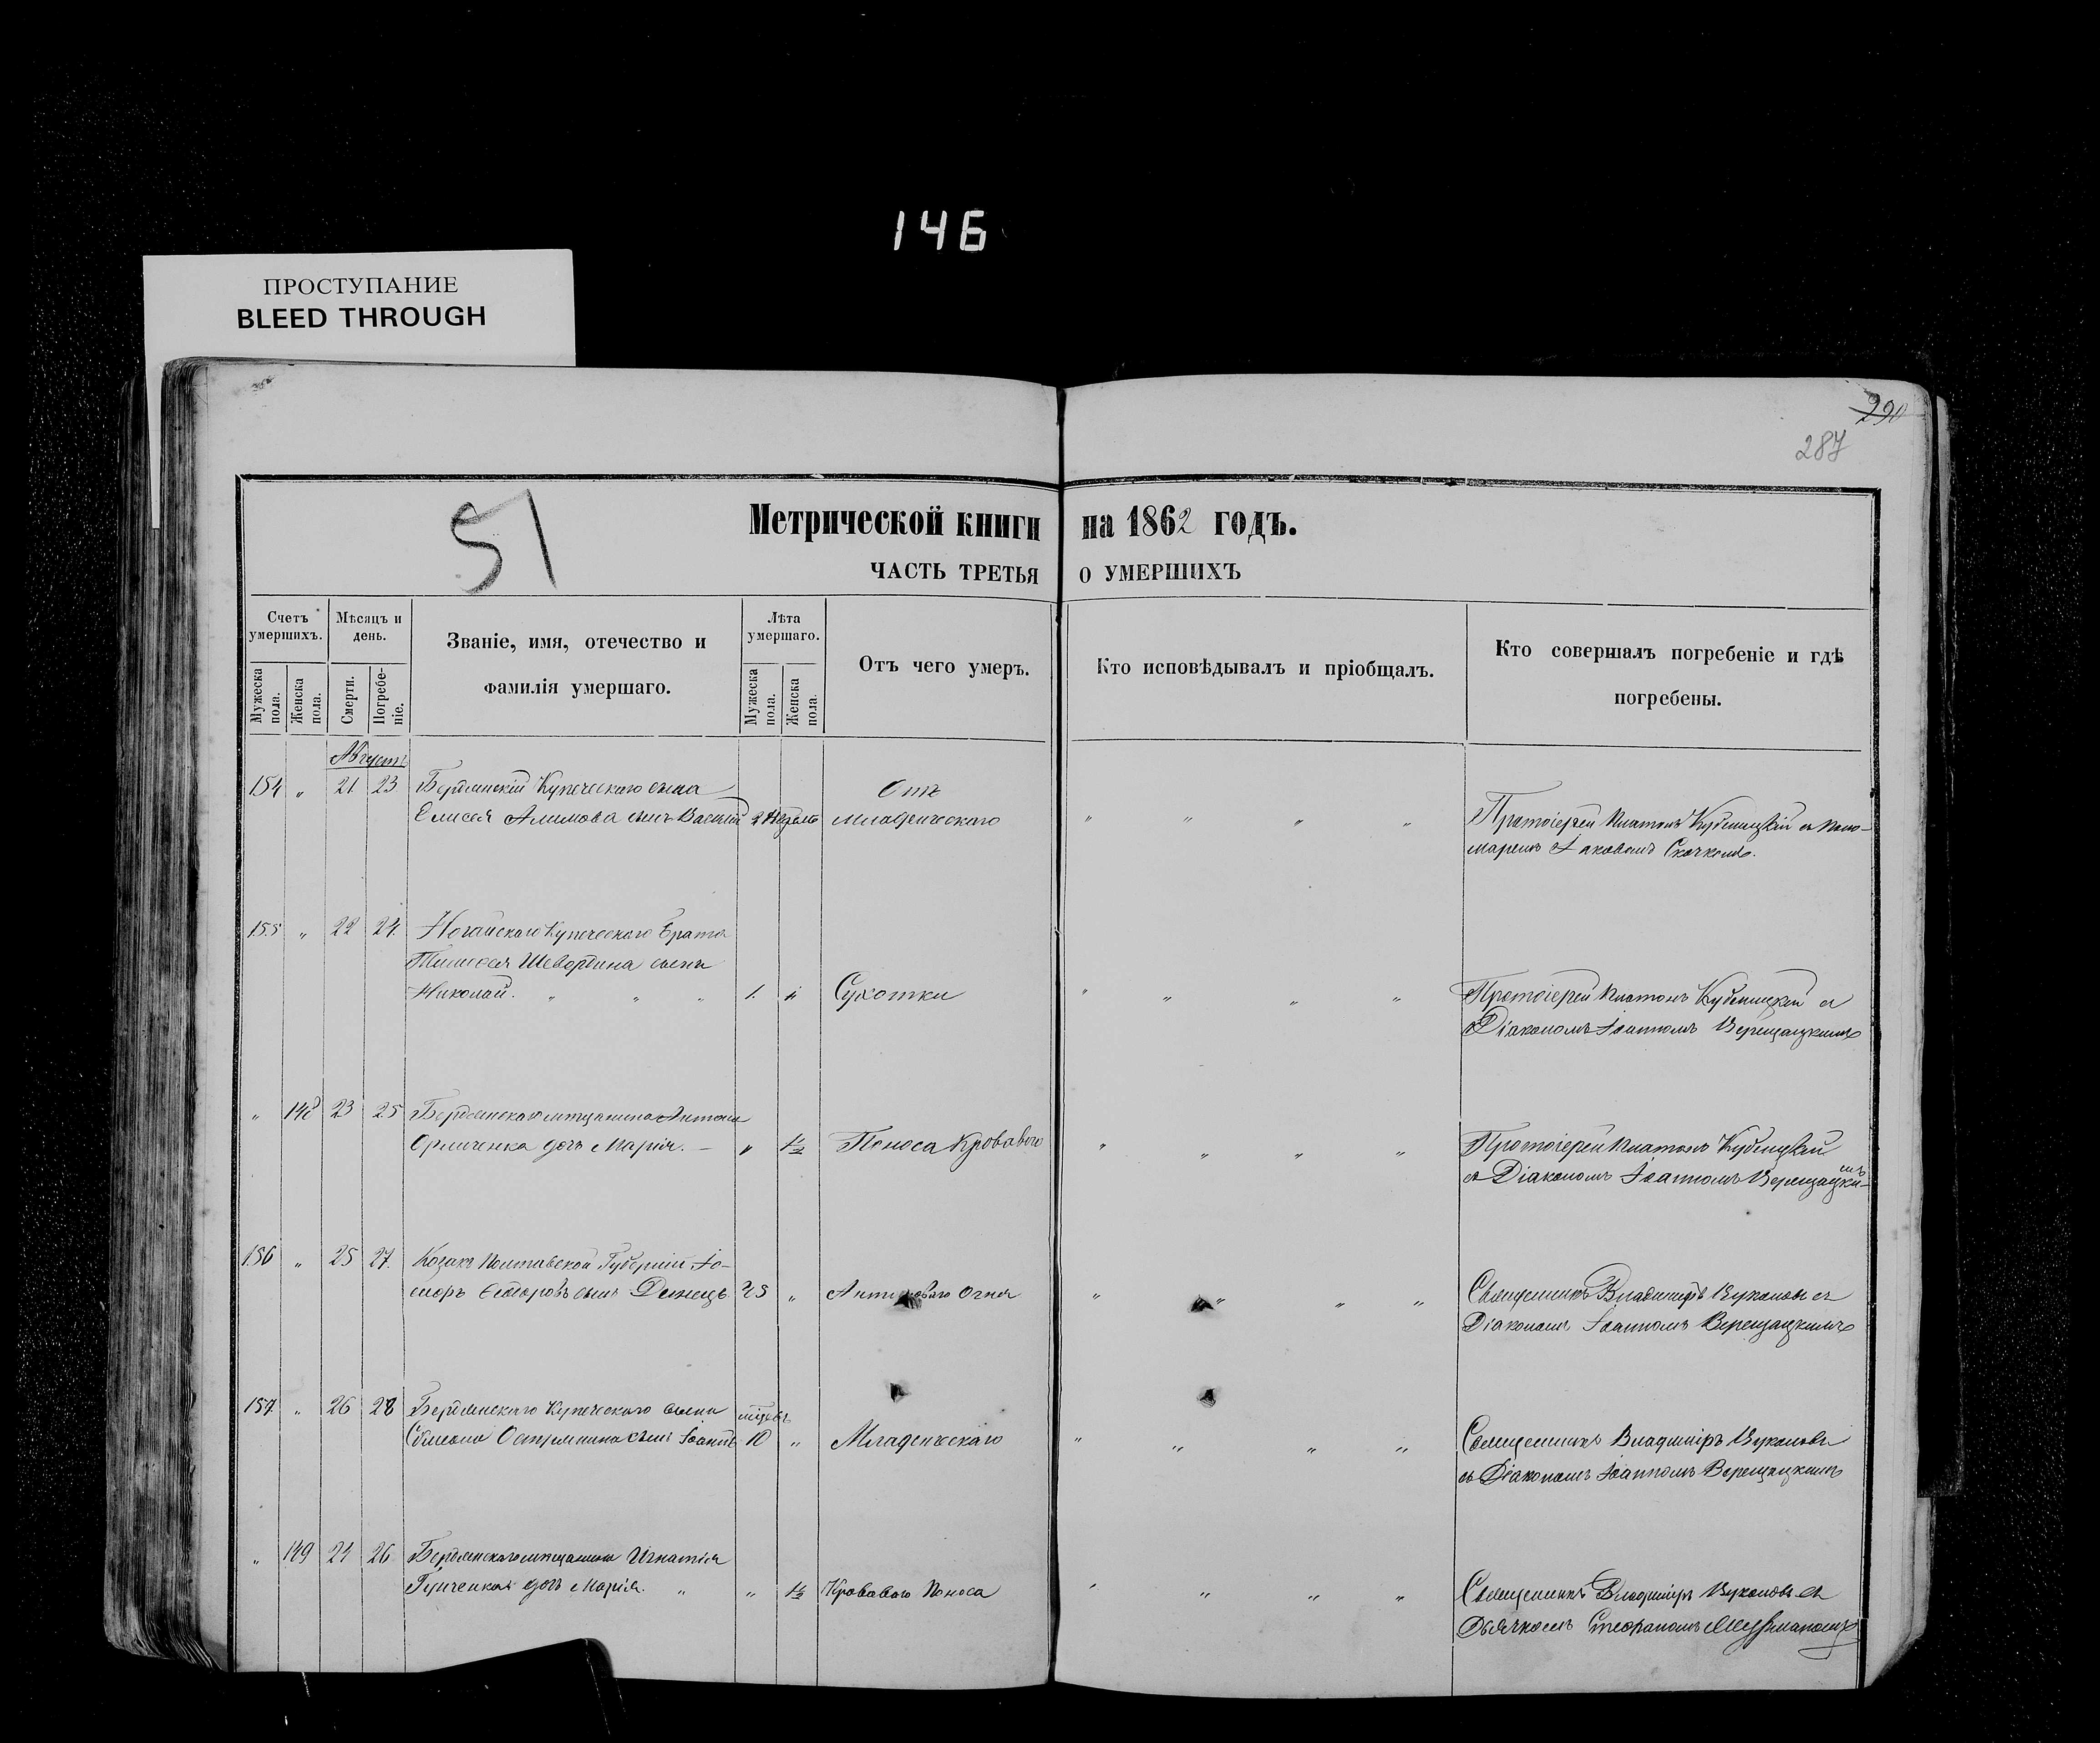 146
ПРОСТУПАНИЕ
BLEED THROUGH
290
287
51
Метрической книги на 1862 годъ.
ЧАСТЬ ТРЕТЬЯ О УМЕРШИХЪ
Счетъ умершихъ.
Мѣсяцъ и день.
Званіе, имя, отечество и фамилія умершаго.
Лѣта умершаго.
Отъ чего умеръ.
Кто исповѣдывалъ и пріобщалъ.
Кто совершалъ погребеніе и гдѣ погребены.
Мужеска пола.
Женска пола.
Смерти.
Погребеніе.
Мужеска пола.
Женска пола.
Августъ
154 " 21 23 Бердянскій Купеческаго сына Отъ
Елисея Алимова сынъ Василій 2 недѣль младенческаго " " " " Протоіерей Платонъ с Поно-
маремъ Іаковомъ Скочкомъ.
155 " 22 24 Ногайскаго Купеческаго брата
сынъ
Николай. " " " 1. " Сухотки " " " " Протоіерей Платонъ съ
Діакономъ Іоанномъ Верещацкимъ
" 148 23 25 Бердянскаго мѣщанина Антона
дочь Марія. — " 1½ Поноса Кроваваго " " " " Протоіерей Платонъ
съ Діакономъ Іоанномъ Верещацкимъ
156 " 25 27 Козакъ Полтавской Губерніи
сынъ 25 " Огня " " " " Священникъ Владиміръ Вуколовъ съ
Діакономъ Іоанномъ Верещацкимъ
157 " 26 28 Бердянскаго Купеческаго сына
сынъ Іоаннъ 10 " Младенческаго " " " " Священникъ Владиміръ Вуколовъ
съ Діакономъ Іоанномъ Верещацкимъ
" 149 24 26 Бердянскаго мѣщанина Игнатія
дочь Марія. " " 1½ Кроваваго Поноса " " " " Священникъ Владиміръ Вуколовъ съ
Дьячкомъ Стефаномъ